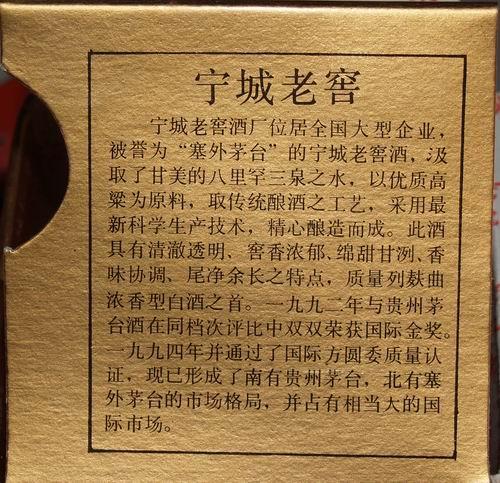 宁城老窖
宁城老窖酒厂位居全国大型企业，
被誉为“塞外茅台”的宁城老窖酒，汲
取了甘美的八里罕三泉之水，以优质高
粱为原料，取传统酿酒之工艺，采用最
新科学生产技术，精心酿造而成。此酒
具有清澈透明、窖香浓郁、绵甜甘洌、香
味协调、尾净余长之特点，质量列麸曲
浓香型白酒之首。一九九二年与贵州茅
台酒在同档次评比中双双荣获国际金奖。
一九九四年并通过了国际方圆委质量认
证，现已形成了南有贵州茅台，北有塞
外茅台的市场格局，并占有相当大的国
际市场。